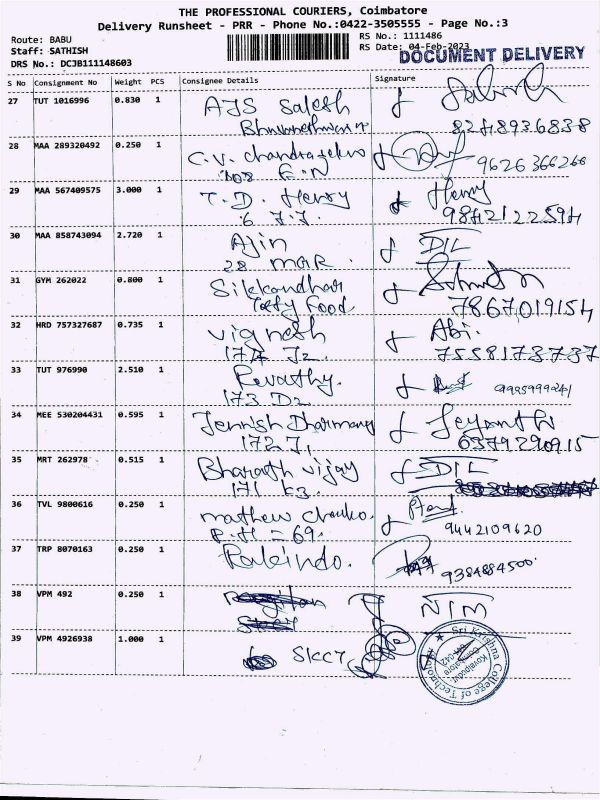 THE PROFESSIONAL COURIERS, Coimbatore
Delivery Runsheet - PRR - Phone No.:0422-3505555 - Page No.:3
Route: BABU
Staff: SATHISH
DRS No.: DCJB111148603
RS No.: 1111486
RS Date: 04-Feb-2023
DOCUMENT DELIVERY
S No Consignment No Weight PCS Consignee Details Signature
27 TUT 1016996 0.830 1 AJS Salesh
8248936838
28 MAA 289320492 0.250 1 C.V. Chandrasekar
108 E.N 9626366266
29 MAA 567409575 3.000 1 T.D. Henry Henry
6 7.7. 9842122594
30 MAA 858743094 2.720 1 Ajin DIL
28 MAR.
31 GYM 262022 0.800 1 Sikkandhar
Tasty Food 7867019154
32 HRD 757327687 0.735 1 Vignesh Abi.
174 J2. 7558173737
33 TUT 976990 2.510 1 Revathy.
173 D2
34 MEE 530204431 0.595 1 Jennish Dharmaraj Jeyanthi
172 J1 6379290915
35 MRT 262978 0.515 1 Bharath Vijay DIL
171 K3.
36 TVL 9800616 0.250 1 Mathew Chacko.
P.H = 69. 9442109620
37 TRP 8070163 0.250 1 9384884500
38 VPM 492 0.250 1 NIM
39 VPM 4926938 1.000 1 SKCT
Sri Krishna College of Technology
Kovaipudur
Coimbatore
641 042